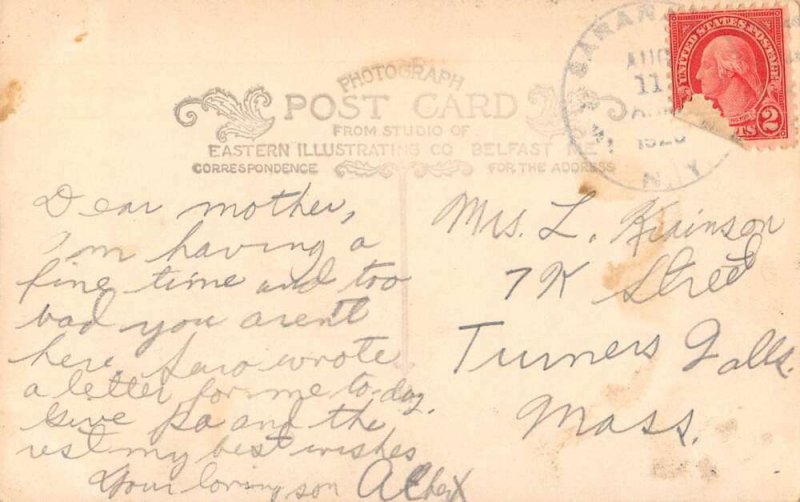 PHOTOGRAPH
POST CARD
FROM STUDIO OF
EASTERN ILLUSTRATING CO BELFAST ME
CORRESPONDENCE FOR THE ADDRESS
SARANA
AUG
11
192
N.Y.
UNITED STATES POSTAGE
2
Dear mother,
I'm having a
fine time and too
bad you aren't
here. wrote
a letter for me to-day.
Give pa and the
rest my best wishes
Your loving son Albert
Mrs. L.
7 K Street
Turners Falls.
Mass.